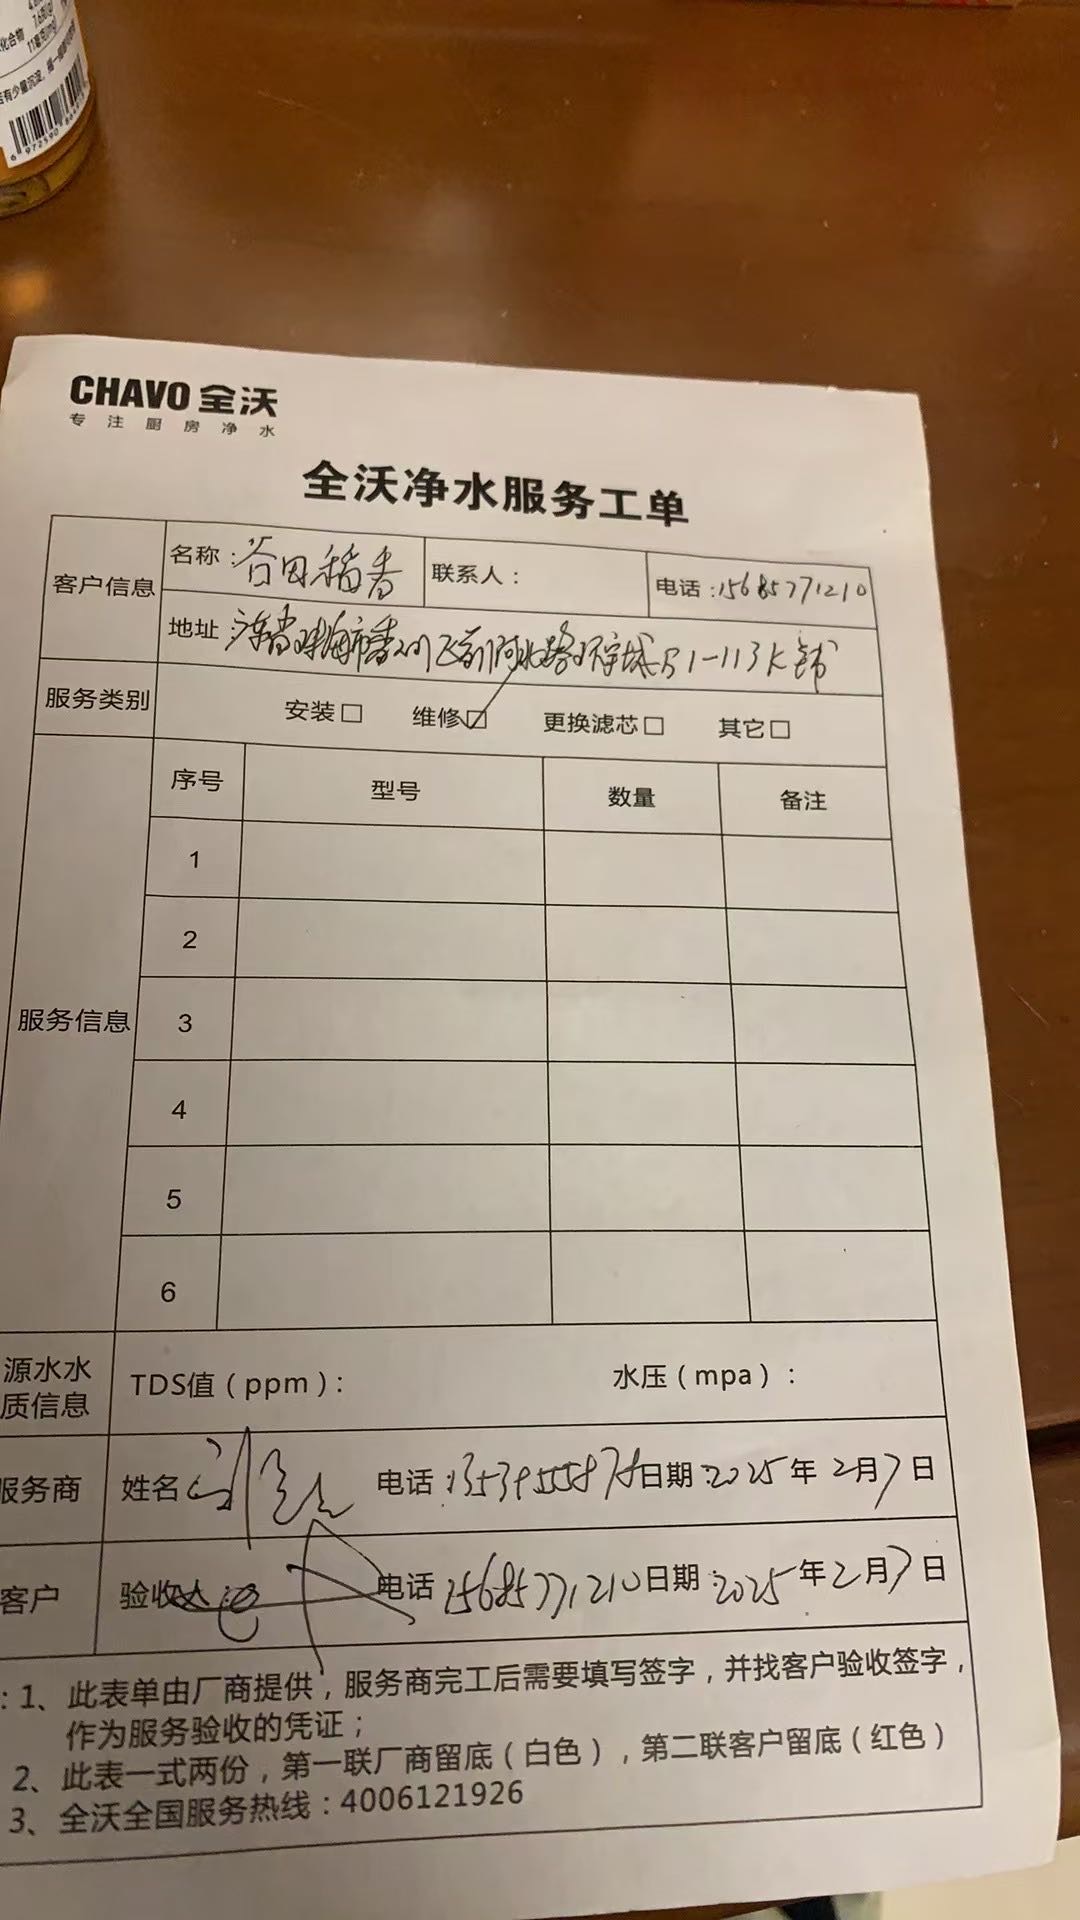 化合物
7.6克(g)
11毫克(mg)
CHAVO 全沃
专注厨房净水
全沃净水服务工单
客户信息
名称：谷田稻香
联系人：
电话：15685771210
地址：
服务类别
安装□ 维修☑ 更换滤芯□ 其它□
服务信息
序号 型号 数量 备注
1
2
3
4
5
6
源水水
质信息
TDS值（ppm）：
水压（mpa）：
服务商
姓名
电话： 日期：2025年2月7日
客户
验收人：
电话 15685771210 日期：2025年2月7日
：1、此表单由厂商提供，服务商完工后需要填写签字，并找客户验收签字，
作为服务验收的凭证；
2、此表一式两份，第一联厂商留底（白色），第二联客户留底（红色）
3、全沃全国服务热线：4006121926